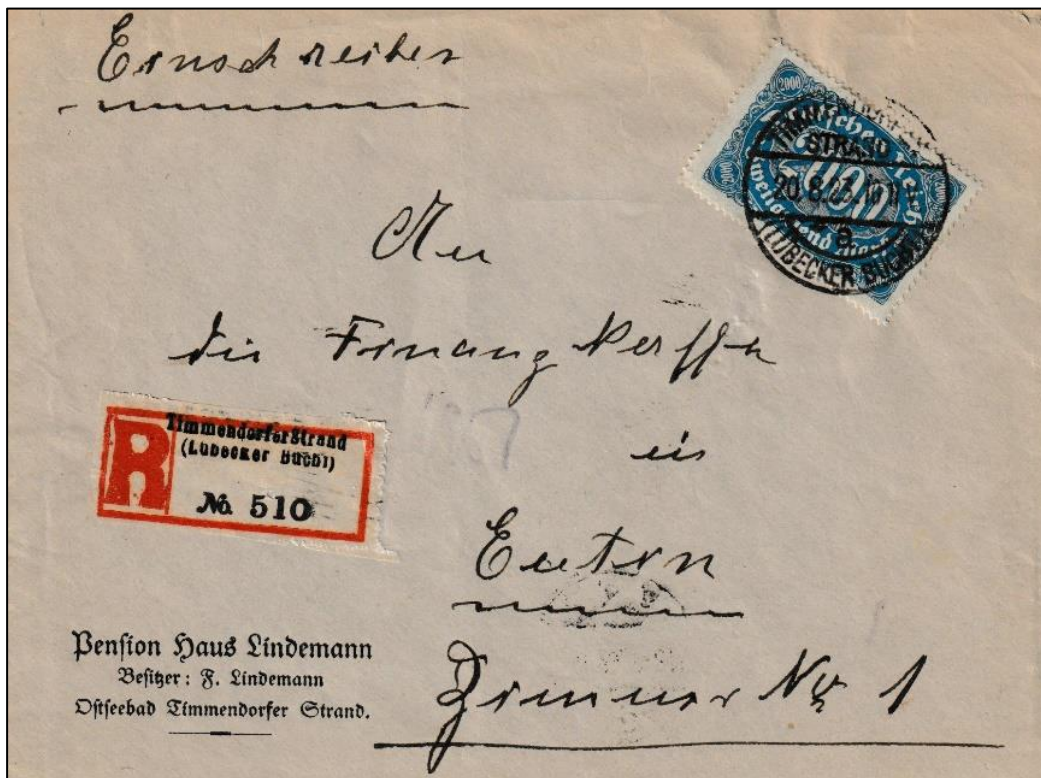 Einschreiben
2000
Deutsches Reich
2000
Zweitausend Mark
TIMMENDORFER
STRAND
20.8.23. 10-11
a
(LÜBECKER BUCHT)
An
die Finanzkasse
in
Eutin
Zimmer No 1
R
Timmendorfer Strand
(Lübecker Bucht)
№ 510
Pension Haus Lindemann
Besitzer: F. Lindemann
Ostseebad Timmendorfer Strand.